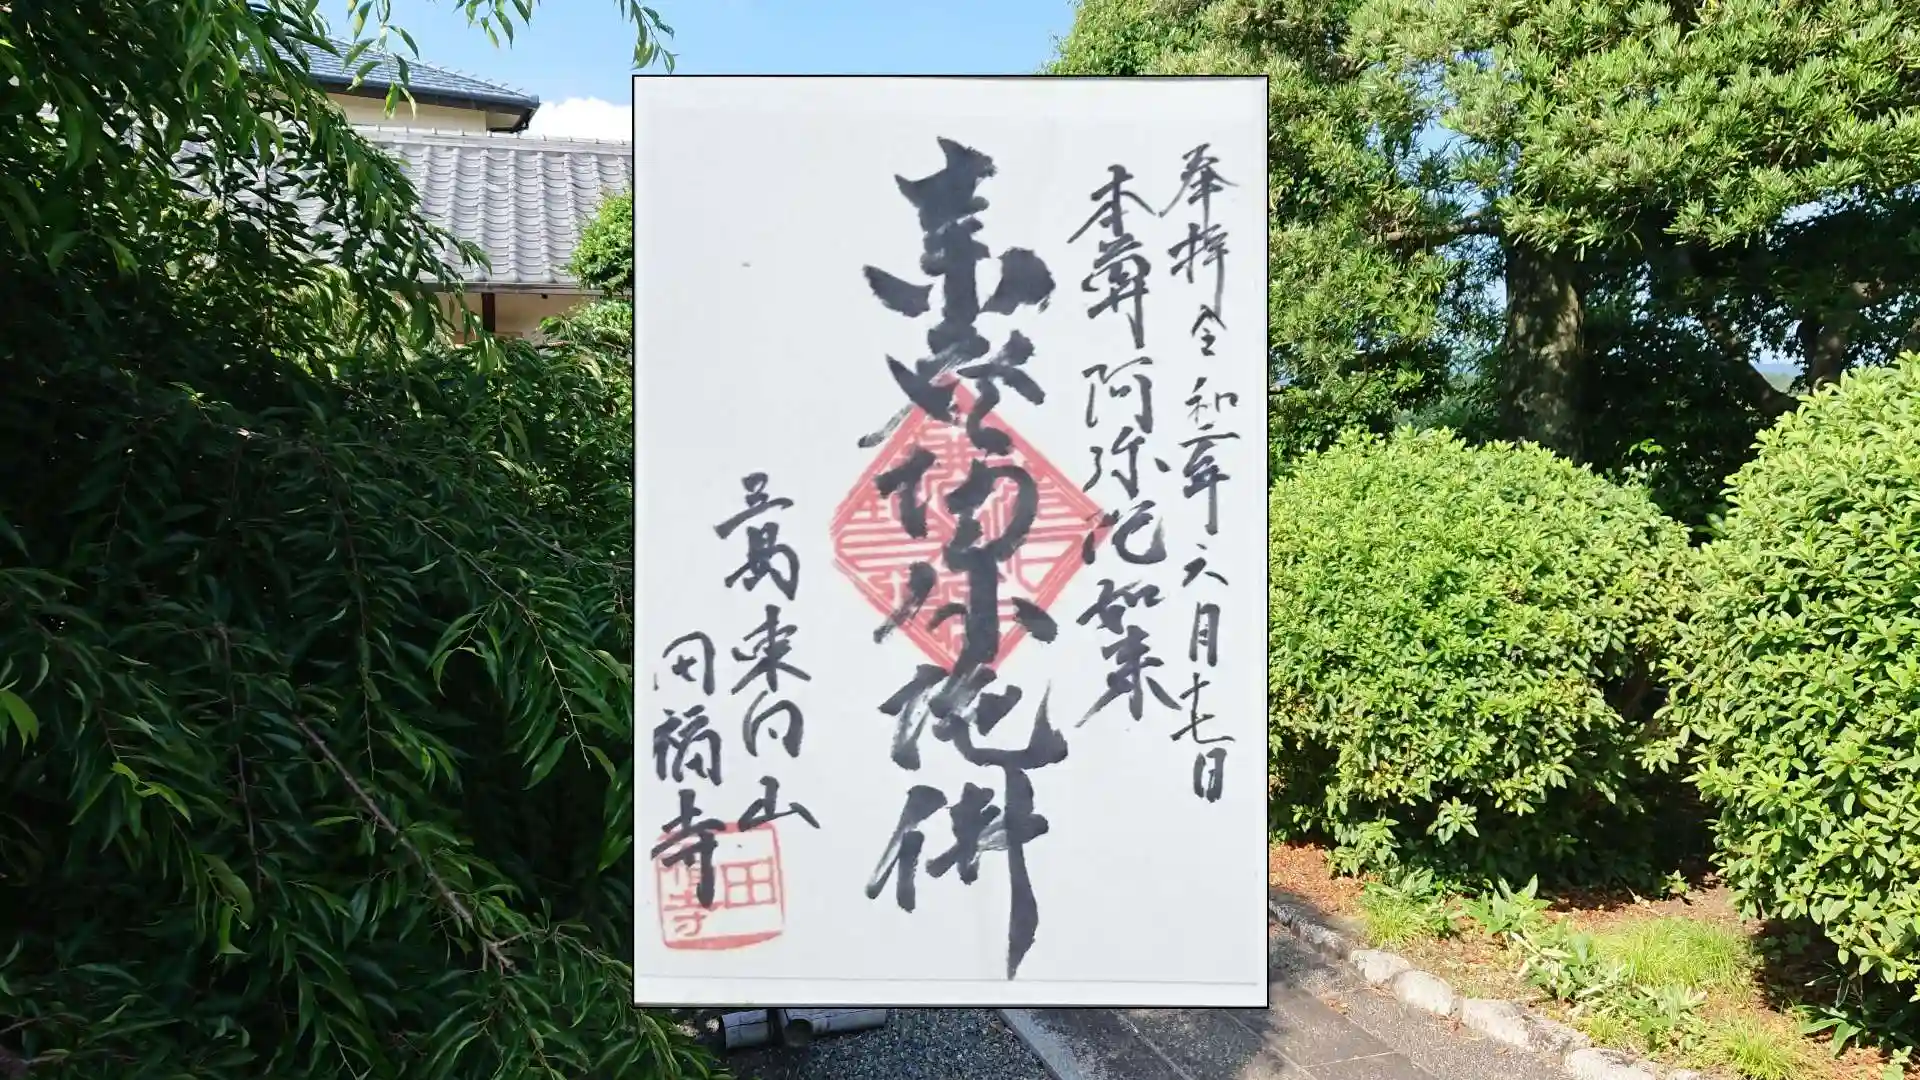 奉拝 令和二年六月十七日
本尊 阿弥陀如来
南無阿弥陀佛
三島 東向山
田福寺
田福寺